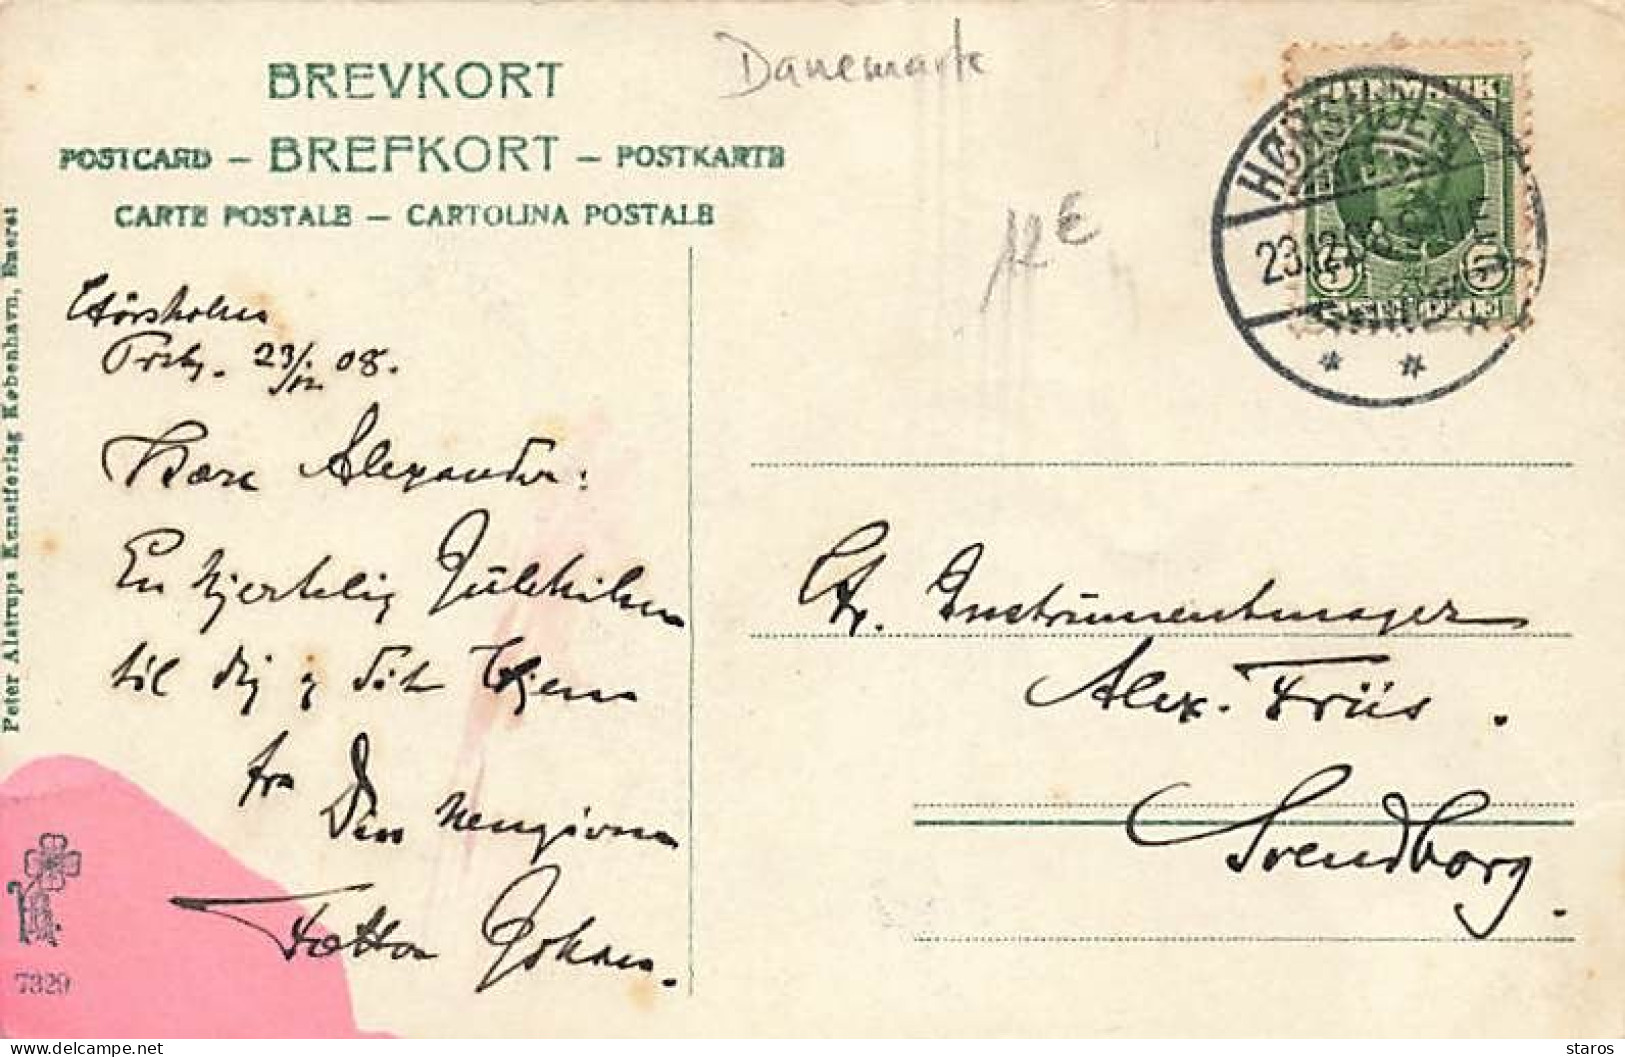 BREVKORT
POSTCARD — BREFKORT — POSTKARTE
CARTE POSTALE — CARTOLINA POSTALE
Danemark
12 €
HØRSHOLM
23.12.08
Peter Alstrups Kunstforlag København, Eneret
Hörsholm
23/12 08.
Kære Alexander:
En hjertelig Julehilsen
til dig og dit Hjem
fra
Din hengivne
Fætter Johan.
Hr. Instrumentmager
Alex. Friis.
Svendborg.
7329
delcampe.net
staros